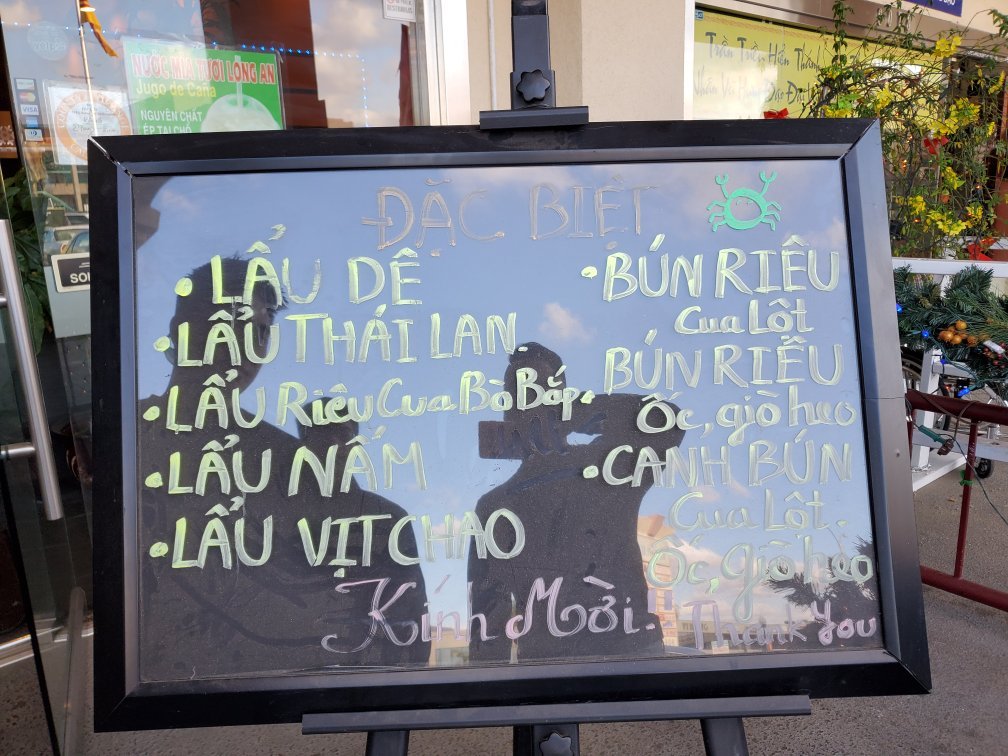 NƯỚC MÍA TƯƠI LONG AN
Jugo de Caña
NGUYÊN CHẤT
ÉP TẠI CHỖ
VISA
ĐẶC BIỆT
• LẨU DÊ
• LẨU THÁI LAN.
• LẨU Riêu Cua Bò Bắp.
• LẨU NẤM
• LẨU VỊT CHAO
• BÚN RIÊU
Cua Lột
• BÚN RIÊU
Ốc, giò heo
• CANH BÚN
Cua Lột.
Ốc, giò heo
Kính Mời!
Thank You